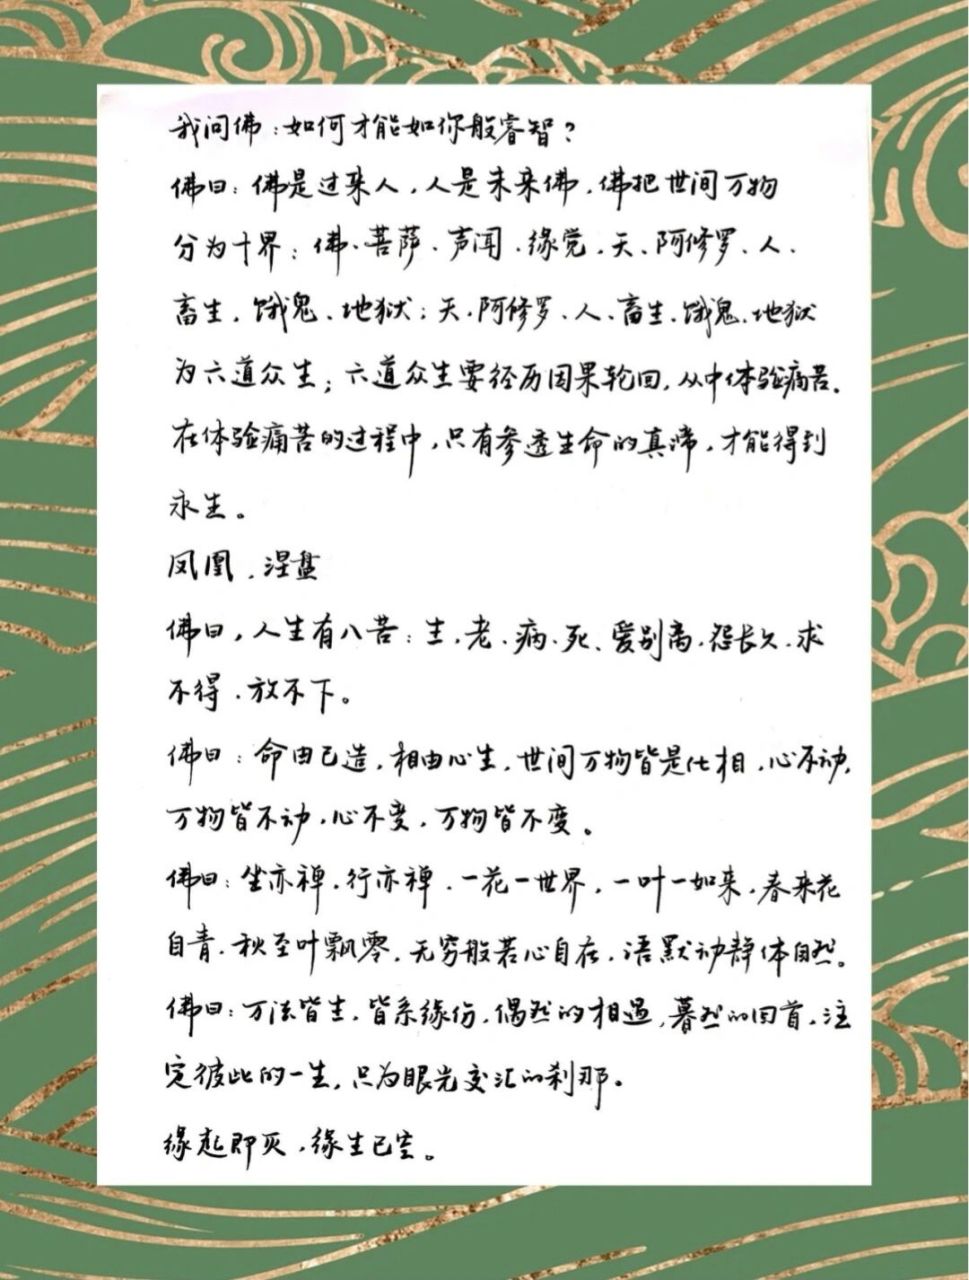 我问佛:如何才能如你般睿智?
佛曰:佛是过来人,人是未来佛,佛把世间万物
分为十界:佛、菩萨、声闻、缘觉、天、阿修罗、人、
畜生、饿鬼、地狱;天、阿修罗、人、畜生、饿鬼、地狱
为六道众生;六道众生要经历因果轮回,从中体验痛苦。
在体验痛苦的过程中,只有参透生命的真谛,才能得到
永生。
凤凰,涅盘
佛曰,人生有八苦:生、老、病、死、爱别离、怨长久、求
不得、放不下。
佛曰:命由己造,相由心生,世间万物皆是化相,心不动,
万物皆不动,心不变,万物皆不变。
佛曰:坐亦禅,行亦禅,一花一世界,一叶一如来,春来花
自青,秋至叶飘零,无穷般若心自在,语默动静体自然。
佛曰:万法皆生,皆系缘份,偶然的相遇,暮然的回首,注
定彼此的一生,只为眼光交汇的刹那。
缘起即灭,缘生已空。